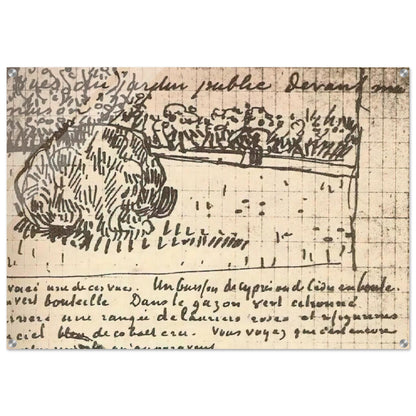 du jardin public devant ma
voici une de ces vue. Un buisson de cyprès ou de cèdre en boule
vert bouteille Dans le gazon vert citronné
une rangée de lauriers roses et 2 figurines
ciel bleu de cobalt cru. Vous voyez que c'est encore
qu'auparavant